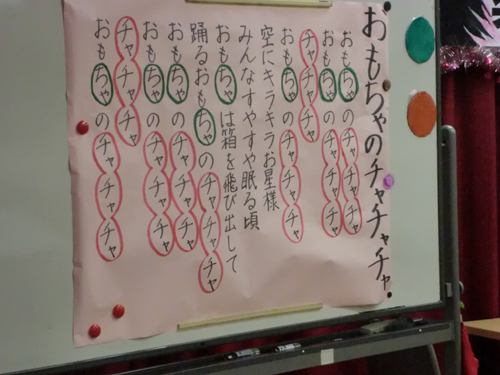 おもちゃのチャチャチャ
おもちゃのチャチャチャ
おもちゃのチャチャチャ
チャチャチャ
おもちゃのチャチャチャ
空にキラキラお星様
みんなすやすや眠る頃
おもちゃは箱を飛び出して
踊るおもちゃのチャチャチャ
おもちゃのチャチャチャ
おもちゃのチャチャチャ
チャチャチャ
おもちゃのチャチャチャ